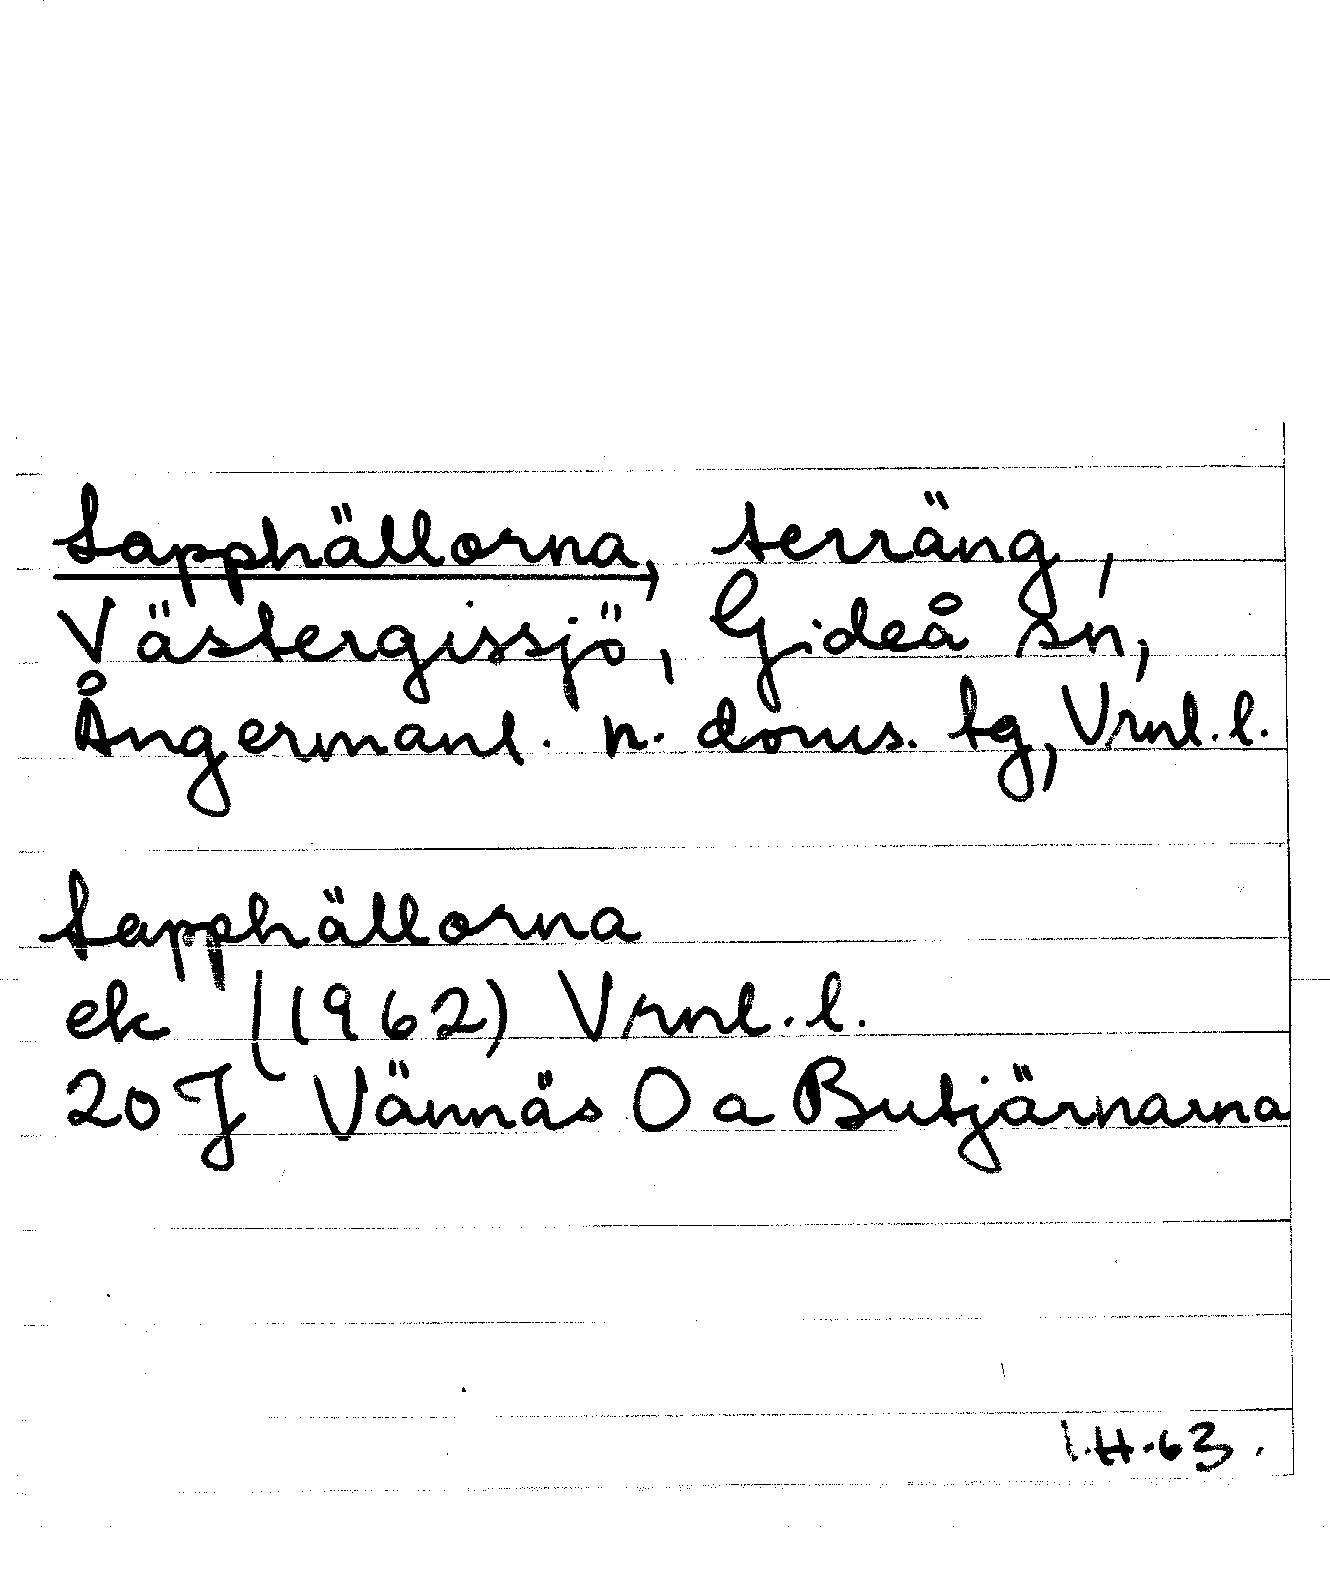 Lapphällorna, terräng,
Västergissjö, Gideå sn,
Ångermanl. n. doms. tg, Vrnl. l.
Lapphällorna
ek (1962) Vrnl. l.
20 J Vännäs O a Butjärnarna
I.H.63.